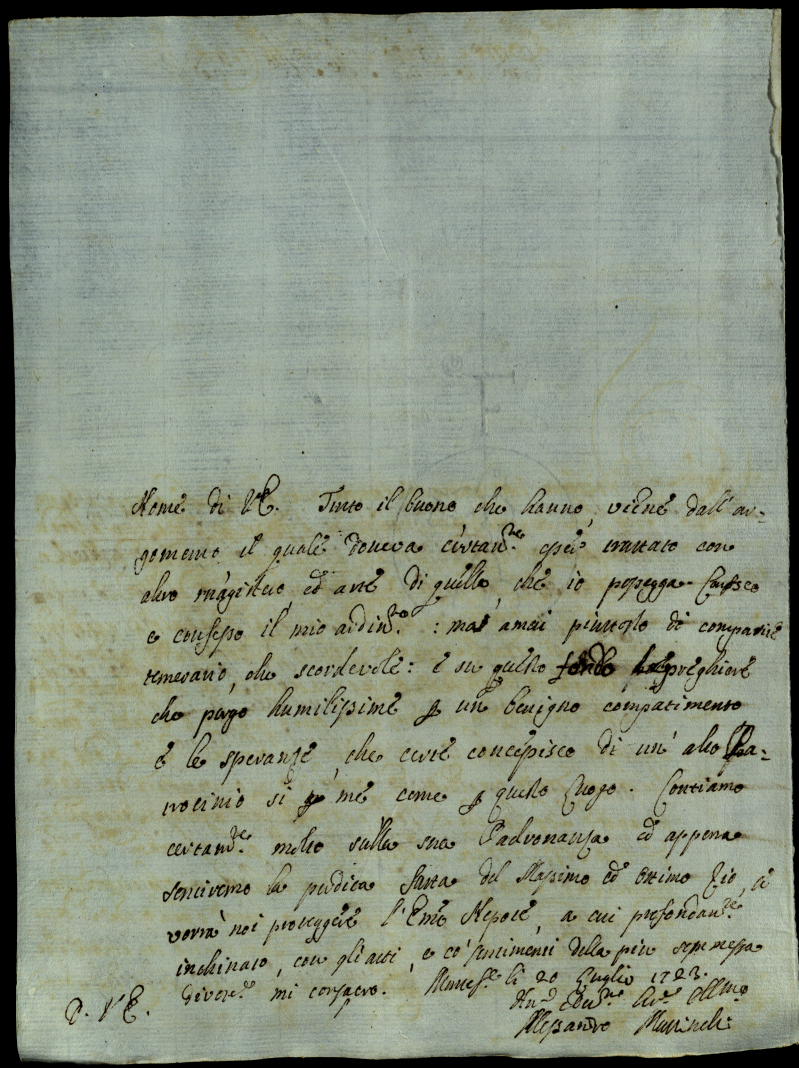 Nome di V.E. Tutto il buono che hanno, viene dall'ar=
gomento il quale doueva certam.te esser trattato con
altro magistero ed arte di quello che io possegga. Conosco
e confesso il mio ardim.to: ma amai piuttosto di comparire
temerario, che scordevole: e su questo fondo preghiere
che porgo humilissime p un benigno compatimento
e le speranze, che certe concepisco di un' alto Pa=
trocinio si p me come p questo Luogo. Contiamo
certam.te molto sulla sua Padronanza ed appena
sentiremo la perdita fatta del Massimo ed Ottimo Zio, se
vorrà noi proteggere l'Emo Nepote, a cui profondam.te
inchinato, con gli atti, e co' sentimenti della più sommessa
divoz.e mi consacro. li 20 Luglio 1723.
D. V.E.
Alessandro